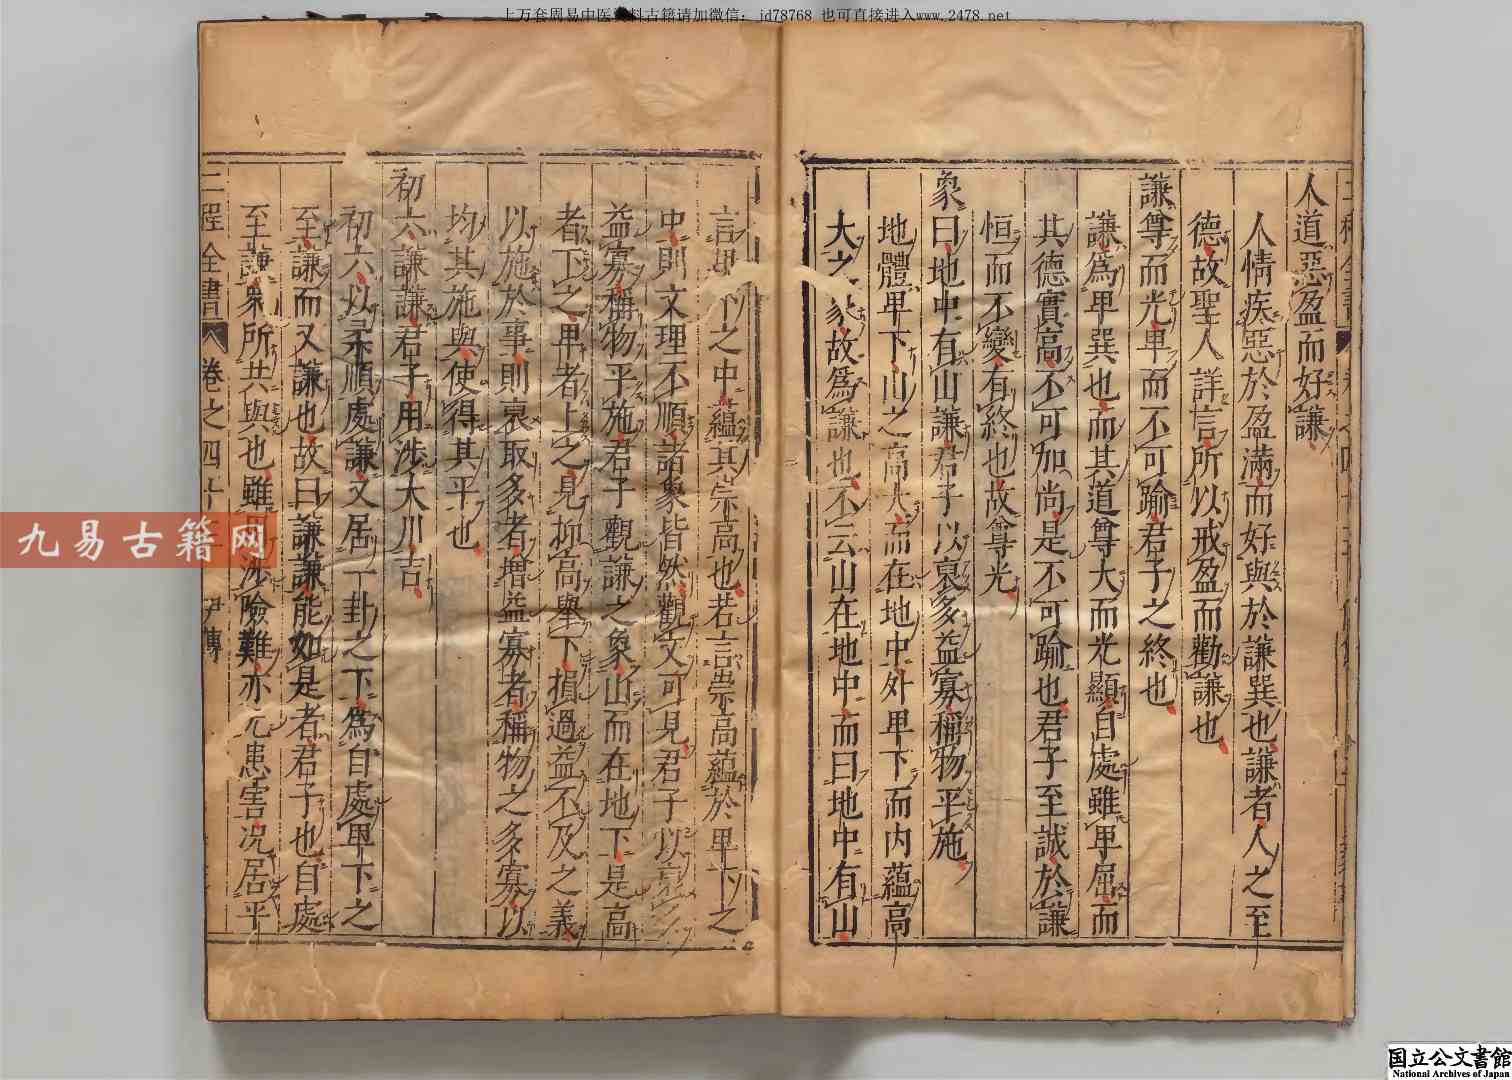 上万套周易中医资料古籍请加微信：jd78768 也可直接进入www.2478.net
人道惡盈而好謙
人情疾惡於盈滿而好與於謙巽也謙者人之至
德故聖人詳信所以戒盈而勸謙也
謙尊而光卑而不可踰君子之終也
謙爲卑巽也而其道尊大而光顯自處雖卑屈而
其德實高不可加尚是不可踰也君子至誠於謙
恒而不變有終也故尊光
象曰地中有山謙君子以裒多益寡稱物平施
地體卑下山之高大而在地中外卑下而內蘊高
大之象故爲謙也不云山在地中而曰地中有山
言卑下之中蘊其崇高也若言崇高蘊於卑下之
中則文理不順諸象皆然觀文可見君子以裒多
益寡稱物平施君子觀謙之象山而在地下是高
者下之卑者上之見抑高舉下損過益不及之義
以施於事則裒取多者增益寡者稱物之多寡以
均其施與使得其平也
初六謙謙君子用涉大川吉
初六以柔順處謙又居一卦之下爲自處卑下之
至謙而又謙也故曰謙謙能如是者君子也自處
至謙衆所共與也雖 涉險難亦无患害況居平
二程全書 卷之四十 伊傳
九易古籍网
国立公文書館
National Archives of Japan